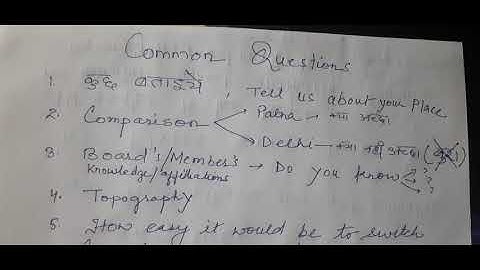 Common Questions
1. कुछ बताइये, Tell us about your Place
2. Comparison
Patna → क्या अच्छा
Delhi → क्या नहीं अच्छा (बुरा)
3. Board's/Member's → Do you know ? ? ?
Knowledge/affiliations
4. Topography
5. How easy it would be to switch